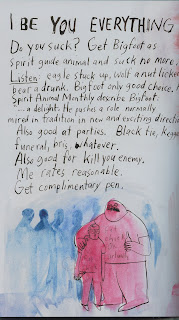 I BE YOU EVERYTHING
Do you suck? Get Bigfoot as
spirit guide animal and suck no more.
Listen: eagle stuck up, wolf a nut licker,
bear a drunk. Bigfoot only good choice.
Spirit Animal Monthly describe Bigfoot:
"...a delight. He pushes a role normally
mired in tradition in new and exciting directio
Also good at parties. Black tie, Kegger
funeral, bris, whatever.
Also good for kill you enemy.
Me rates reasonable.
Get complimentary pen.